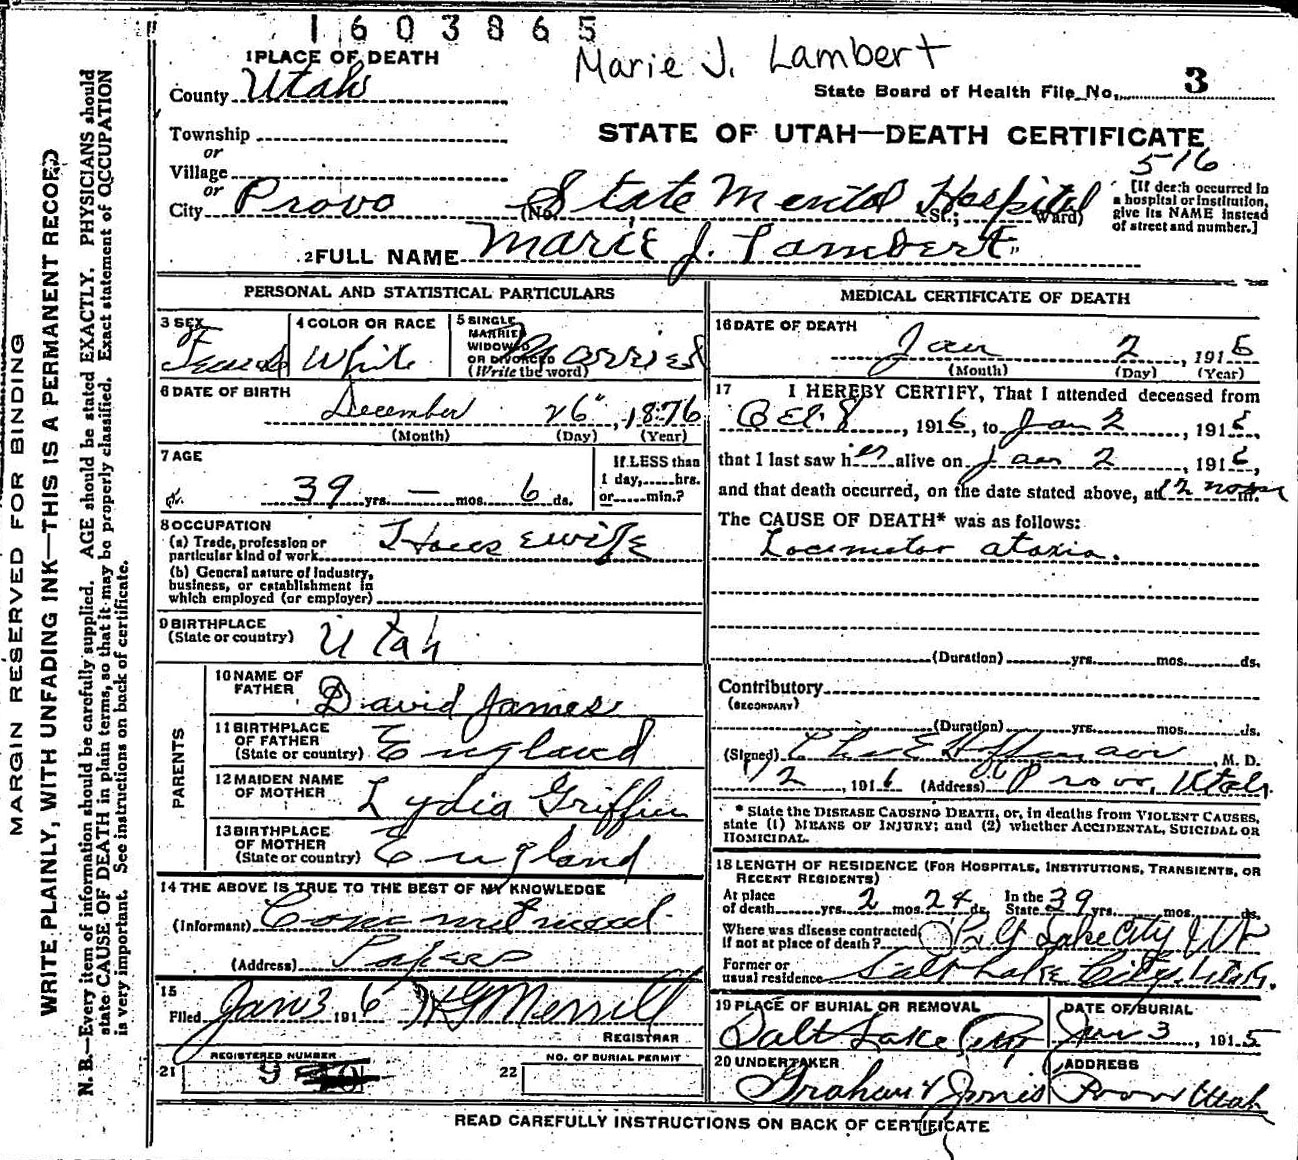 1603865
Marie J. Lambert
1 PLACE OF DEATH
County Utah
State Board of Health File No. 3
Township
or
STATE OF UTAH—DEATH CERTIFICATE
516
Village
or
City Provo (No. State Mental Hospital St.; Ward)
[If death occurred in
a hospital or institution,
give its NAME instead
of street and number.]
2 FULL NAME Marie J. Lambert
MARGIN RESERVED FOR BINDING
WRITE PLAINLY, WITH UNFADING INK—THIS IS A PERMANENT RECORD
N. B.—Every item of information should be carefully supplied. AGE should be stated EXACTLY. PHYSICIANS should
state CAUSE OF DEATH in plain terms, so that it may be properly classified. Exact statement of OCCUPATION
is very important. See instructions on back of certificate.
PERSONAL AND STATISTICAL PARTICULARS
3 SEX
Female
4 COLOR OR RACE
White
5 SINGLE,
MARRIED
WIDOWED
OR DIVORCED
(Write the word)
Married
6 DATE OF BIRTH
December 26, 1876
(Month) (Day) (Year)
7 AGE
39 yrs. — mos. 6 ds.
If LESS than
1 day, hrs.
or min.?
8 OCCUPATION
(a) Trade, profession or
particular kind of work Housewife
(b) General nature of industry,
business, or establishment in
which employed (or employer)
9 BIRTHPLACE
(State or country) Utah
PARENTS
10 NAME OF
FATHER David James
11 BIRTHPLACE
OF FATHER
(State or country) England
12 MAIDEN NAME
OF MOTHER Lydia Griffin
13 BIRTHPLACE
OF MOTHER
(State or country) England
14 THE ABOVE IS TRUE TO THE BEST OF MY KNOWLEDGE
(Informant) Committment
(Address) Papers
15
Filed Jan 3 1916 Merrill
REGISTRAR
21 REGISTERED NUMBER
9
22 NO. OF BURIAL PERMIT
MEDICAL CERTIFICATE OF DEATH
16 DATE OF DEATH
Jan 2, 1916
(Month) (Day) (Year)
17 I HEREBY CERTIFY, That I attended deceased from
Oct. 8, 1916, to Jan 2, 1916,
that I last saw her alive on Jan 2, 1916,
and that death occurred, on the date stated above, at 12 noon m.
The CAUSE OF DEATH* was as follows:
Locomotor ataxia.
(Duration) yrs. mos. ds.
Contributory
(SECONDARY)
(Duration) yrs. mos. ds.
(Signed) Chas E Hoffman, M. D.
1/2, 1916 (Address) Provo, Utah.
* State the DISEASE CAUSING DEATH, or, in deaths from VIOLENT CAUSES,
state (1) MEANS OF INJURY; and (2) whether ACCIDENTAL, SUICIDAL OR
HOMICIDAL.
18 LENGTH OF RESIDENCE (FOR HOSPITALS, INSTITUTIONS, TRANSIENTS, OR
RECENT RESIDENTS)
At place
of death yrs. 2 mos. 24 ds. In the
State 39 yrs. mos. ds.
Where was disease contracted,
if not at place of death? Lake City
Former or
usual residence Salt Lake City, Utah.
19 PLACE OF BURIAL OR REMOVAL
Salt Lake City
DATE OF BURIAL
Jan 3, 1915
20 UNDERTAKER
Graham & Jones
ADDRESS
Provo Utah
READ CAREFULLY INSTRUCTIONS ON BACK OF CERTIFICATE